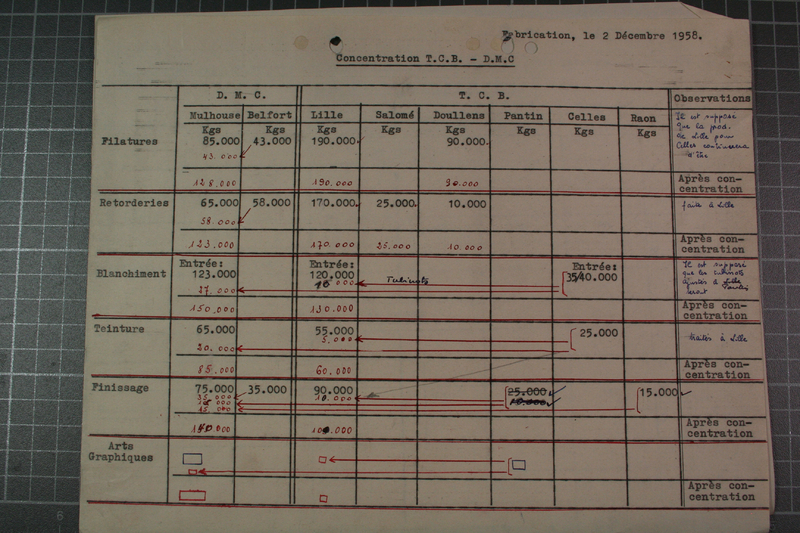 Fabrication, le 2 Décembre 1958.
Concentration T.C.B. - D.M.C
D. M. C. T. C. B. Observations
Mulhouse Belfort Lille Salomé Doullens Pantin Celles Raon
Kgs Kgs Kgs Kgs Kgs Kgs Kgs Kgs
Filatures 85.000 43.000 190.000 90.000
43.000
Il est supposé
que la prod.
de Lille pour
Celles continuera
d'être
128.000 190.000 90.000 Après con-
centration
Retorderies 65.000 58.000 170.000 25.000 10.000 faite à Lille
58.000
123.000 170.000 25.000 10.000 Après con-
centration
Blanchiment Entrée: Entrée: Entrée:
123.000 120.000 40.000
27.000 10.000 Tubinots
Il est supposé
que les tubinots
Pantin
seront
150.000 130.000 Après con-
centration
Teinture 65.000 55.000 25.000 traités à Lille
20.000 5.000
85.000 60.000 Après con-
centration
Finissage 75.000 35.000 90.000 25.000 15.000
35.000 10.000 10.000
15.000
140.000 100.000 Après con-
centration
Arts
Graphiques
Après con-
centration
6